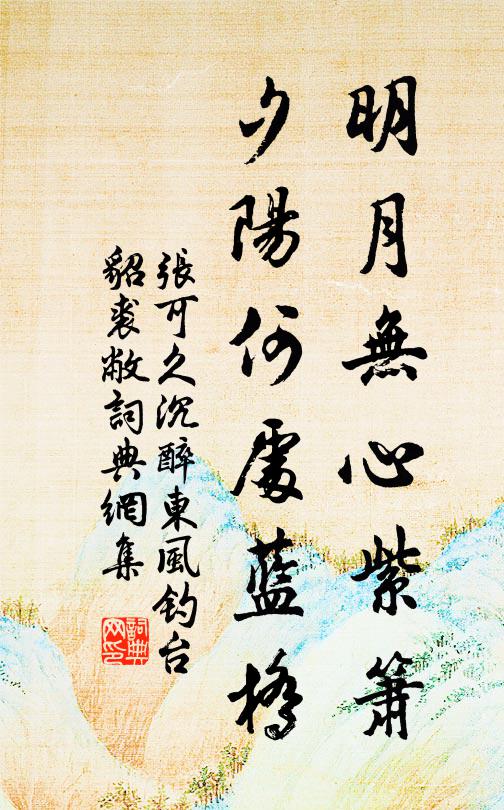 明月無心紫簫
夕陽何處藍橋
張可久沉醉東風釣台
貂裘敝詞典網集
詞典网印